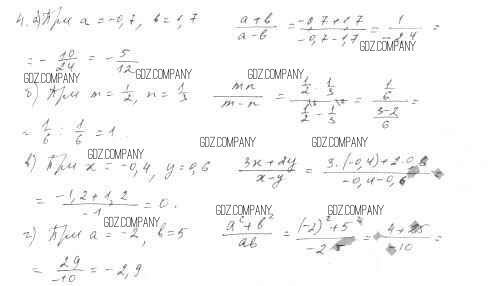 4. а) При a = -0,7, b = 1,7   (a+b)/(a-b) = (-0,7+1,7)/(-0,7-1,7) = 1/(-2,4) =
GDZ.COMPANY
= -10/24 = -5/12
GDZ.COMPANY GDZ.COMPANY
б) При m = 1/2, n = 1/3   mn/(m-n) = (1/2 · 1/3)/(1/2 - 1/3) = (1/6)/((3-2)/6) =
= 1/6 : 1/6 = 1.
GDZ.COMPANY GDZ.COMPANY
GDZ.COMPANY
в) При x = -0,4, y = 0,6   (3x+2y)/(x-y) = (3·(-0,4)+2·0,6)/(-0,4-0,6) =
= (-1,2+1,2)/(-1) = 0.
GDZ.COMPANY GDZ.COMPANY
г) При a = -2, b = 5   (a²+b²)/(ab) = ((-2)²+5²)/(-2·5) = (4+25)/(-10) =
= 29/(-10) = -2,9.